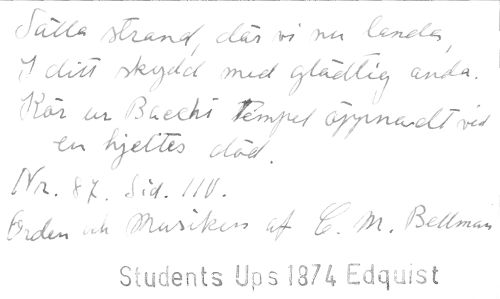 Sälla strand, där vi nu landa,
I ditt skydd med glädtig anda.
Kör ur Bacchi Tempel öppnadt vid
en hjeltes död.
Nr. 87. Sid. 110.
Orden och Musiken af C. M. Bellman
Students Ups 1874 Edquist